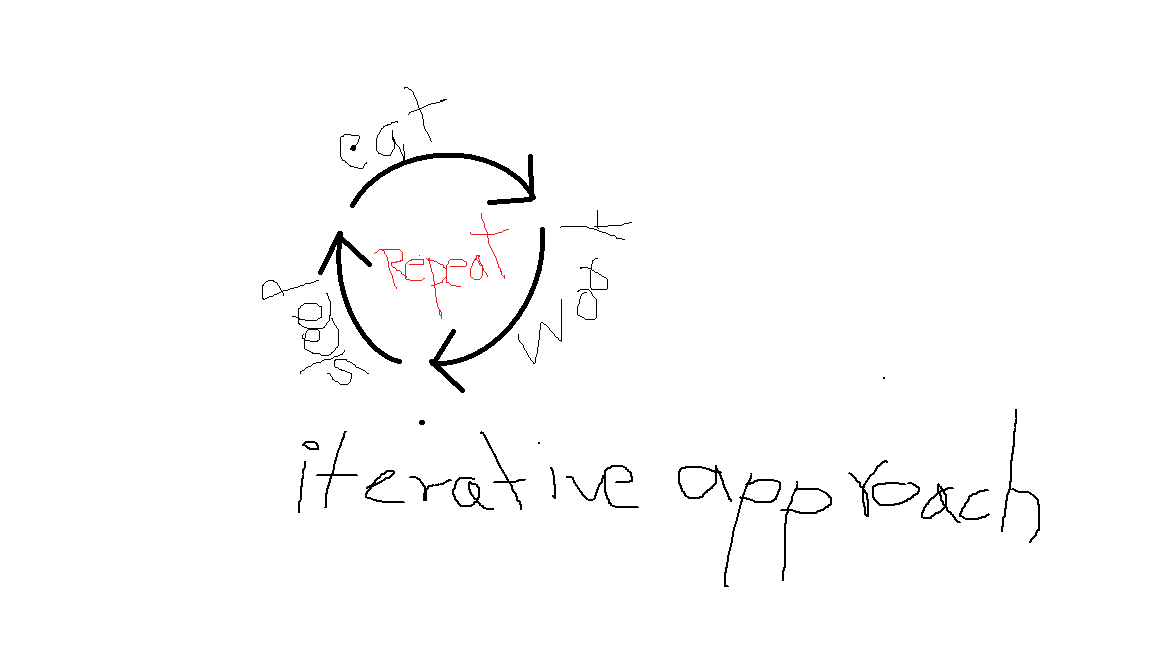 eat
work
sleep
Repeat
iterative approach